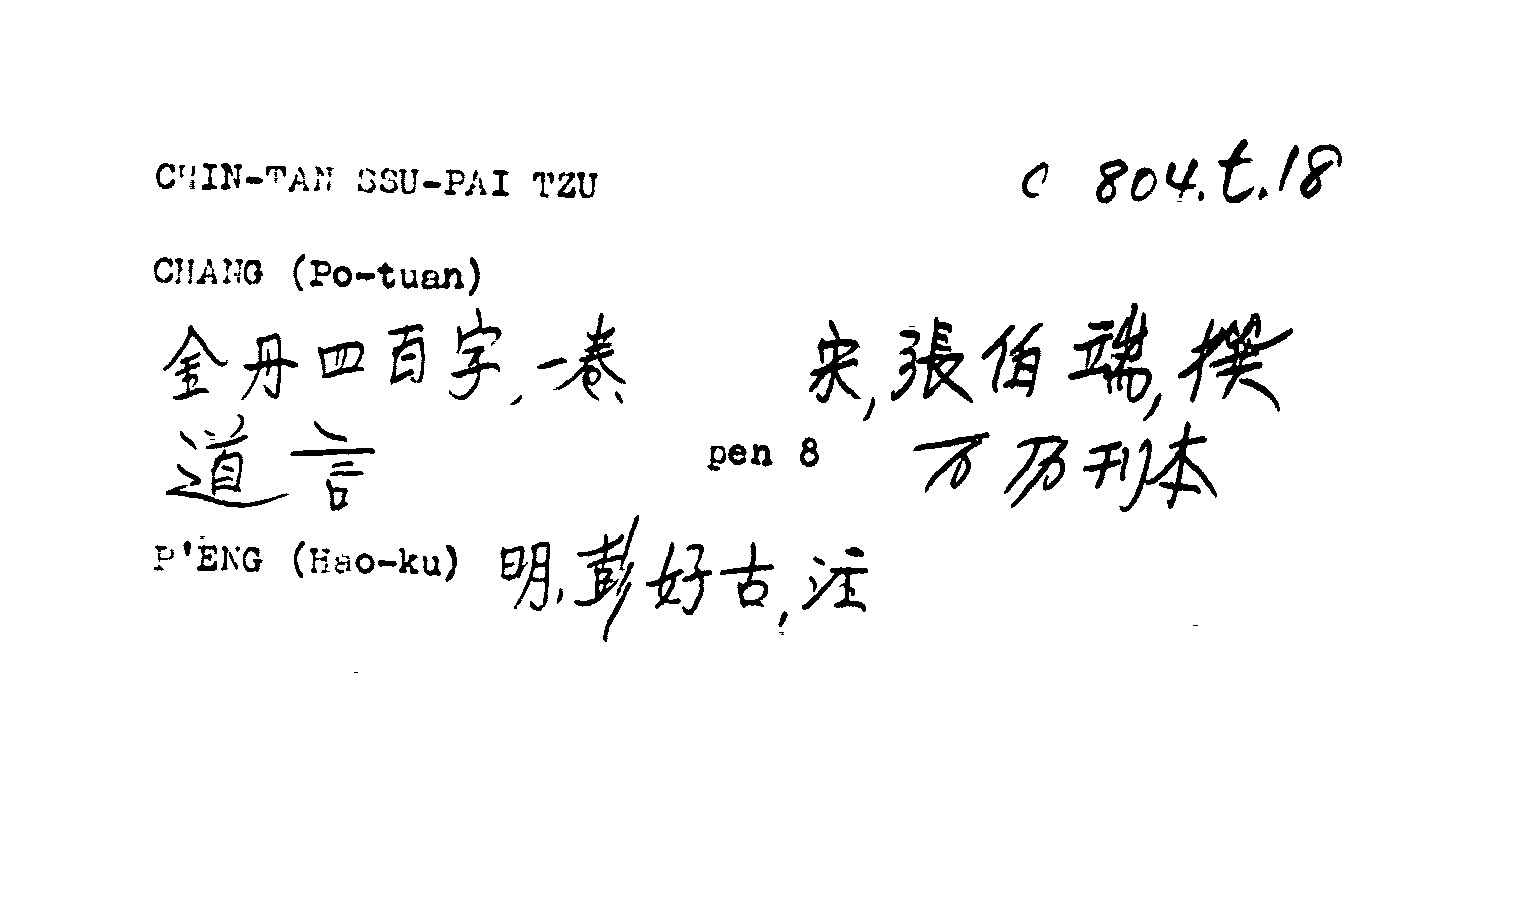 CHIN-TAN SSU-PAI TZU C 804.t.18
CHANG (Po-tuan)
金丹四百字,一卷、 宋,張伯端,撰
道言 pen 8 万历刊本
P'ENG (Hao-ku) 明,彭好古,注